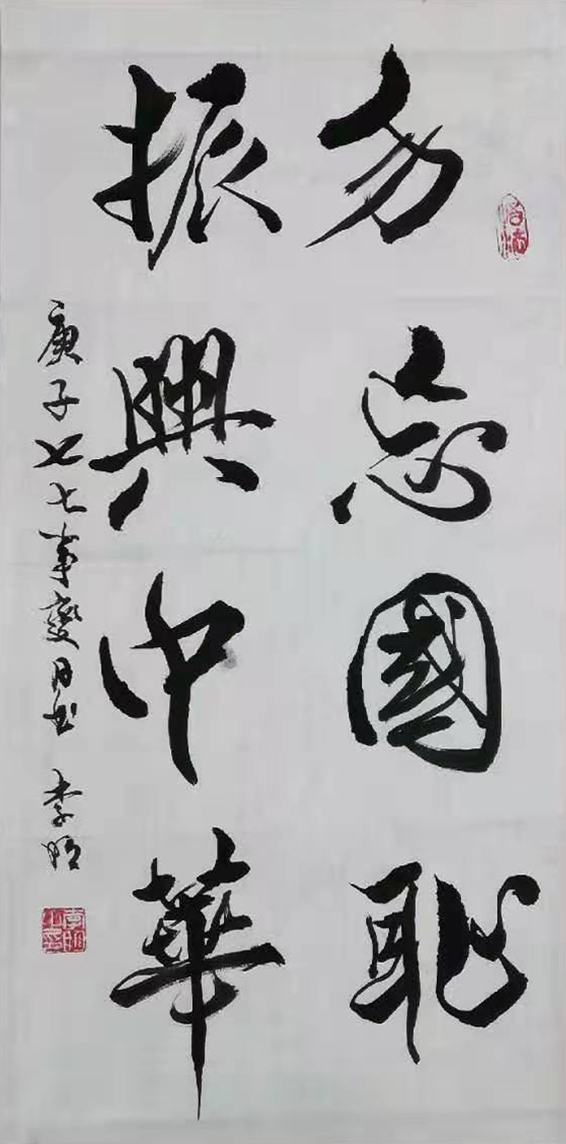 勿忘國耻
振興中華
庚子七七事變日書 李明